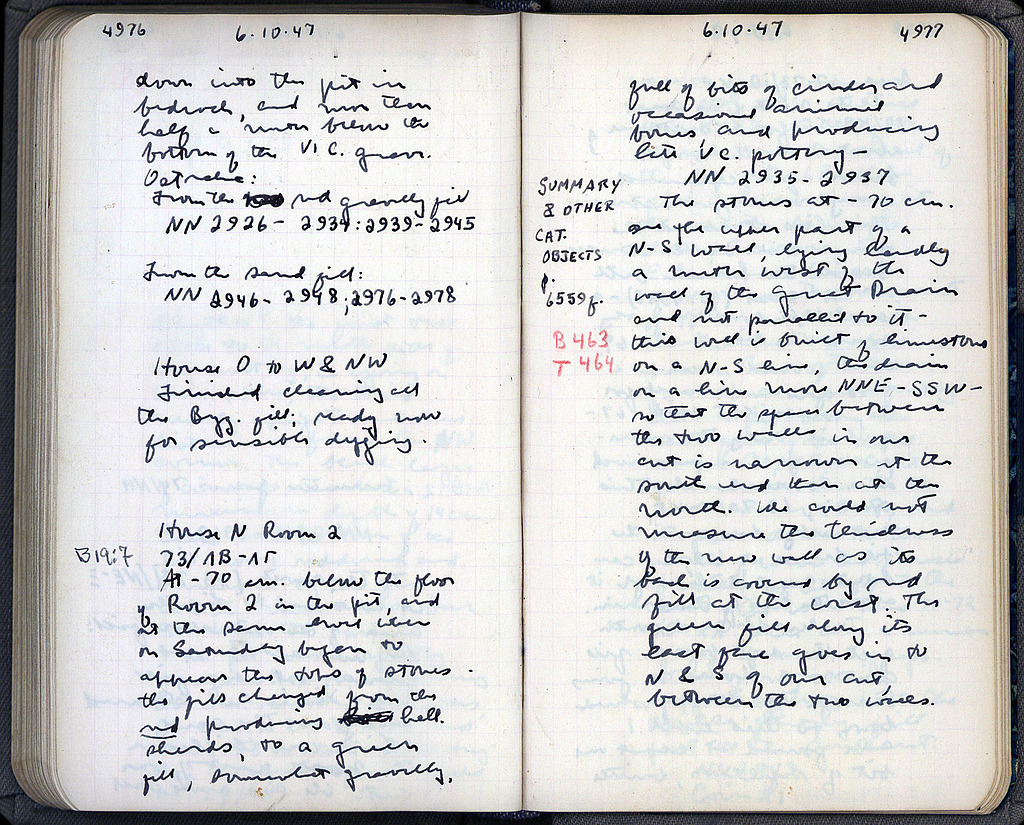 4976
6·10·47
down into the pit in
bedrock, and more than
half a metre below the
bottom of the V/IV C. grave.
Ostraka:
From the red gravelly fill
NN 2926 - 2934: 2939 - 2945
From the sand fill:
NN 2946 - 2948; 2976 - 2978
House O to W & NW
Finished cleaning all
the Byz. fill; ready now
for sensible digging.
House N Room 2
B 19:7
73/ΛB-ΛΓ
At -70 cm. below the floor
of Room 2 in the pit, and
at the same level when
on Saturday began to
appear the tops of stones
the fill changed from the
red producing hell.
sherds, to a green
fill, somewhat gravelly,
6·10·47
4977
full of bits of cinder and
occasional animal
bones and producing
late V C. pottery -
NN 2935 - 2937
SUMMARY
& OTHER
CAT.
OBJECTS
p.
6559 f.
B 463
T 464
The stones at -70 cm.
are the upper part of a
N-S wall, lying hardly
a metre west of the
wall of the Great Drain
and not parallel to it -
this wall is built of limestone
on a N-S line, the drain
on a line more NNE-SSW -
so that the space between
the two walls in our
cut is narrower at the
south end than at the
north. We could not
measure the thickness
of the new wall as its
back is covered by red
fill at the west. The
green fill along its
east face goes in to
N & S of our cut
between the two walls.